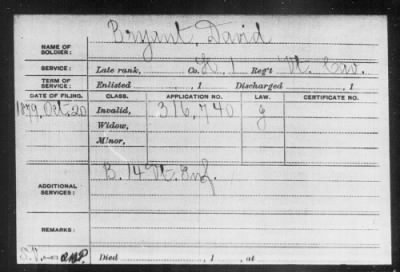 NAME OF SOLDIER: Bryant, David
SERVICE: Late rank, Co. Reg't Vt. Cav.
TERM OF SERVICE: Enlisted , 1 Discharged , 1
DATE OF FILING. CLASS. APPLICATION NO. LAW. CERTIFICATE NO.
1879, Oct. 20 Invalid, 316,740
Widow,
Minor,
ADDITIONAL SERVICES: B. 14 Vt. Inf.
REMARKS:
Died , 1 , at